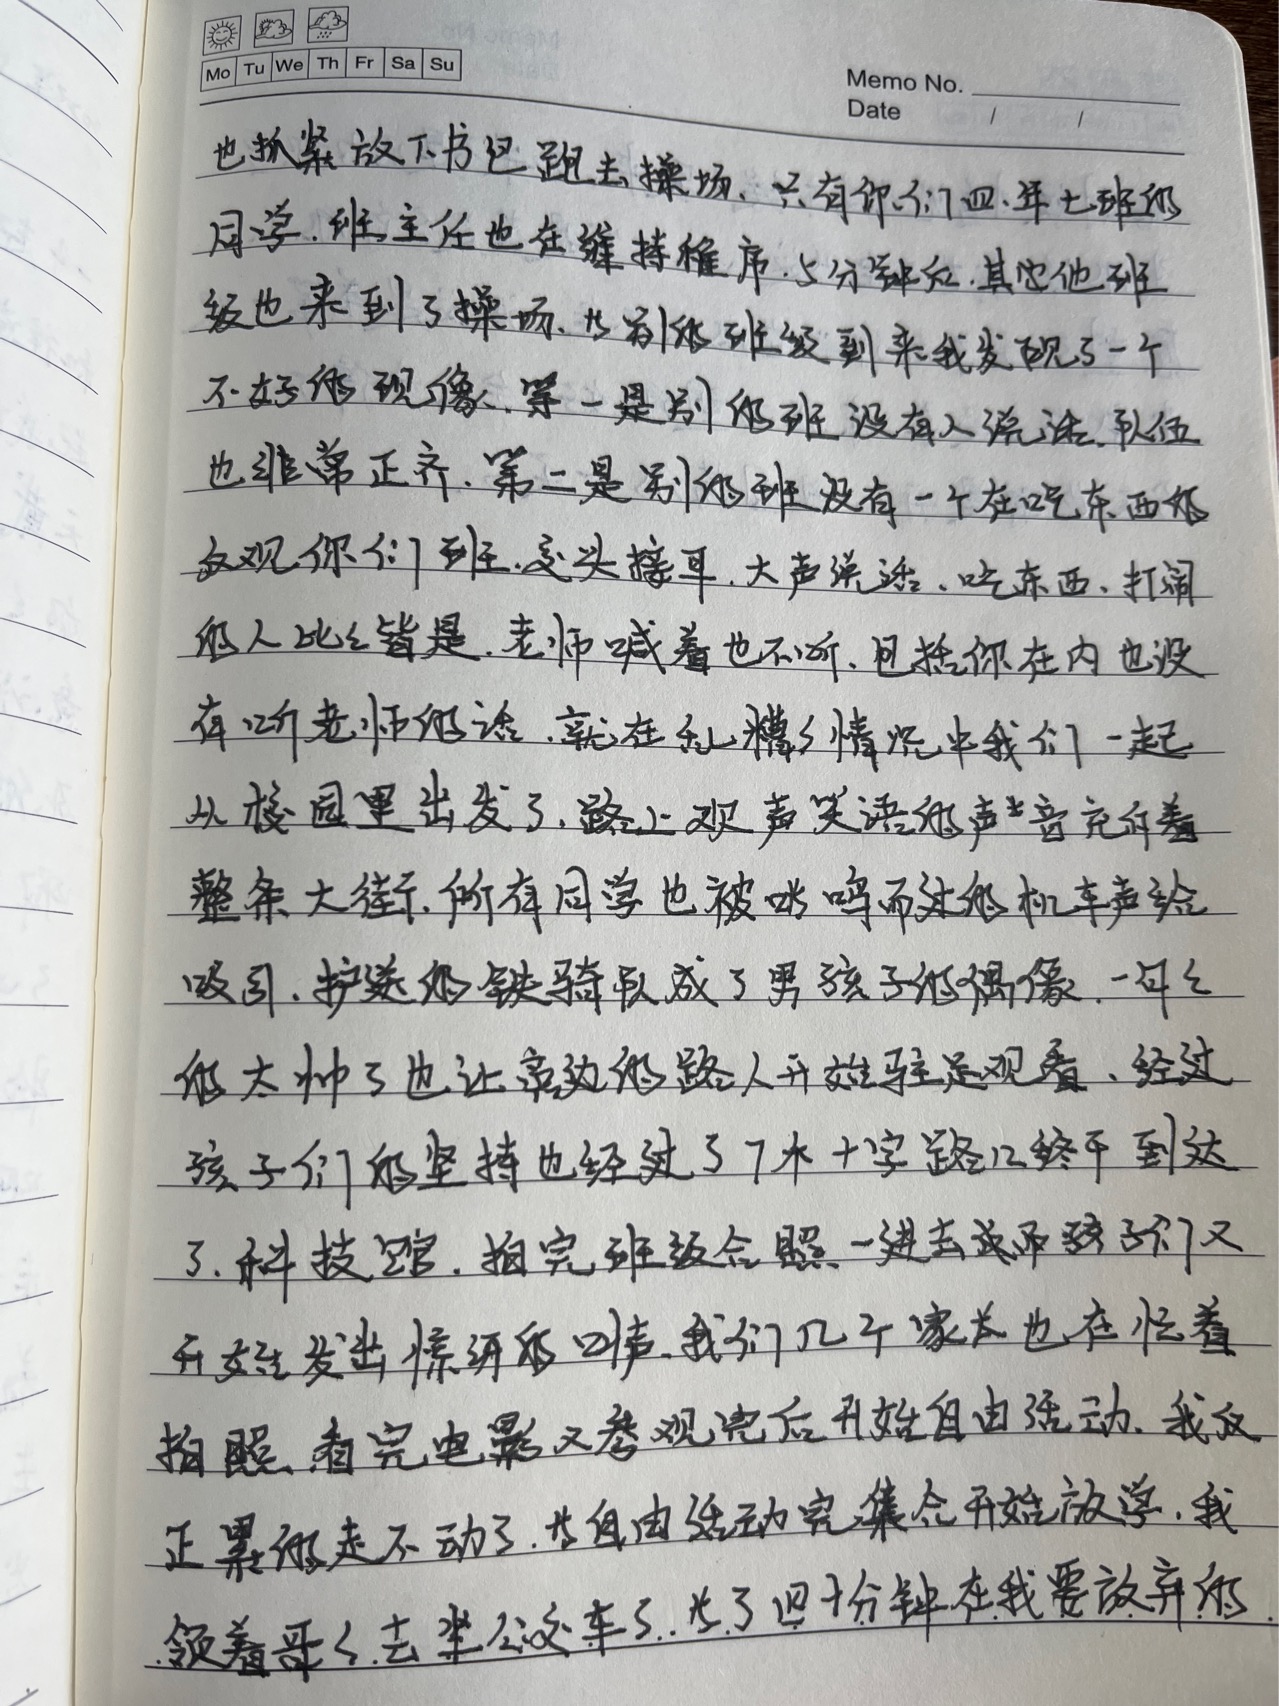 Mo Tu We Th Fr Sa Su
Memo No.
Date / /
也抓紧放下书包跑去操场、只有你们四、年七班的
同学、班主任也在维持秩序、5分钟后、其它他班
级也来到了操场、为别的班级到来我发现了一个
不好的现像、第一是别的班没有人说话、队伍
也非常正齐、第二是别的班没有一个在吃东西的
反观你们班、交头接耳、大声说话、吃东西、打闹
的人比比皆是、老师喊着也不听、包括你在内也没
有听老师的话、就在乱糟々情况中我们一起
从校园里出发了、路上欢声笑语的声音充斥着
整条大街、所有同学也被呼鸣而过的机车声给
吸引、护送的铁骑队成了男孩子的偶像、一句々
的太帅了也让旁边的路人开始驻足观看、经过
孩子们的坚持也经过了7个十字路口终于到达
了、科技馆、拍完班级合照一进去 孩子们又
开始发出惊讶的叫声、我们几个家长也在忙着
拍照、看完电影又参观完后开始自由活动、我反
正累的走不动了、为自由活动完集合开始放学、我
领着哥々去坐公交车了、为了四十分钟在我要放弃的